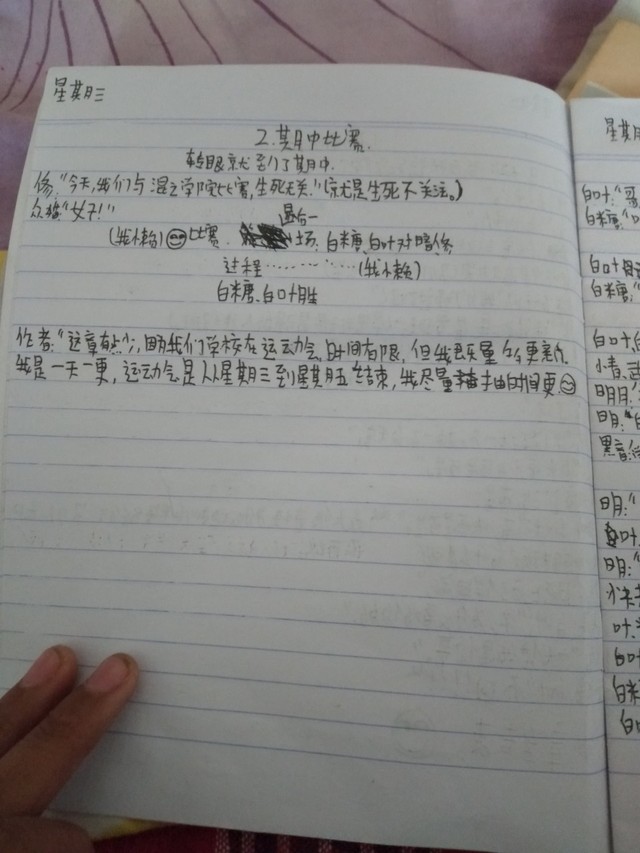 星期三
2.期中比赛.
转眼就到了期中.
修:"今天,我们与混之学院比赛,生死无关!"(就是生死不关注。)
众猫:"女子!"
(我小赖)比赛. 最后一场,白糖,白叶对暗修
过程…………(我小赖)
白米唐,白叶胜
作者:"这章有点少,因为我们学校在运动会,时间有限,但我尽量么更亲们.
我是一天一更,运动会是从星期三到星期五结束,我尽量抽时间更
星期
白叶:"
白米唐:"
白叶
白米唐:"
白叶
小青:
明月:
明:"白
黑
明:"
叶
明:"
叶
白叶
白米
白